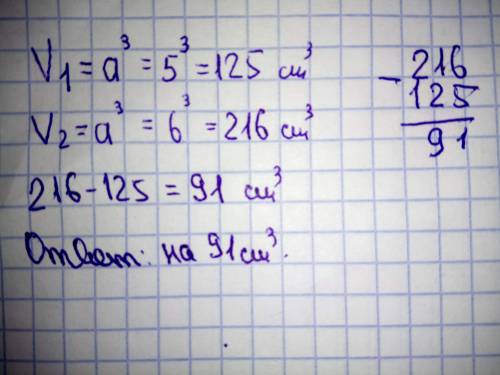 V₁ = a³ = 5³ = 125 см³
V₂ = a³ = 6³ = 216 см³
216 - 125 = 91 см³
Ответ: на 91 см³.
- 216
125
91